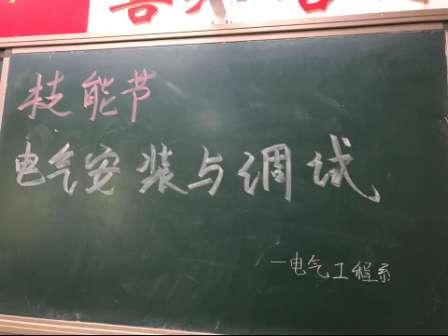 技能节
电气安装与调试
一电气工程系